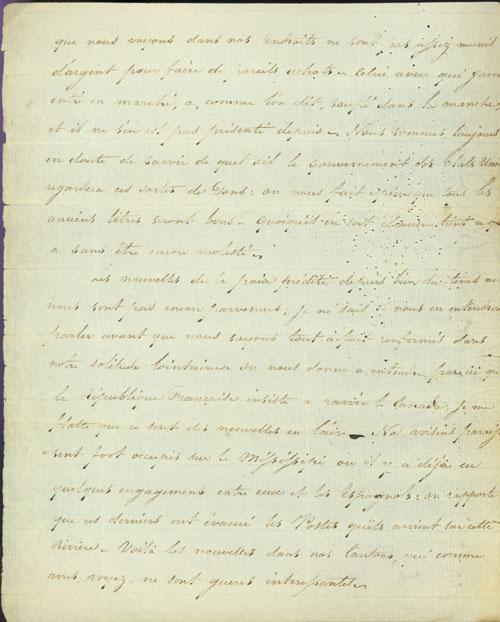 que nous voyons dans nos Endroits ne sont pas assez munis
d'argent pour faire de pareils achats. Celui avec qui j'avois
entré en marché, a, comme l'on dit, souflé dans la manche
et il ne s'en est pas présenté depuis. Nous sommes toujours
en doute de savoir de quel oeil le Gouvernement des Etats Unis
regardera ces sortes de Dons: on nous fait que tous les
anciens titres seront bons. Quoiqu'il en soit chacun tient ce qu'il
a sans être encore molesté.
Les nouvelles de la paix prédite depuis bien du tems ne
nous sont pas encore parvenues, je ne sais si nous en entendrons
parler avant que nous soyons tout à fait renfermés dans
notre solitude lointaine. On nous donne a entendre par ici que
la République Française insiste a ravoir le Canada. Je me
flatte que ce sont des nouvelles en l'air. Nos voisins paroissent
sont fort occupés sur le Mississipi ou il y a déja eu
quelques engagemens entre eux et les Espagnols: on rapporte
que ces derniers ont évacué les Postes qu'ils avoient sur cette
Rivière. Voilà les nouvelles dans nos Cantons, qui comme
vous voyez ne sont gueres interessantes.